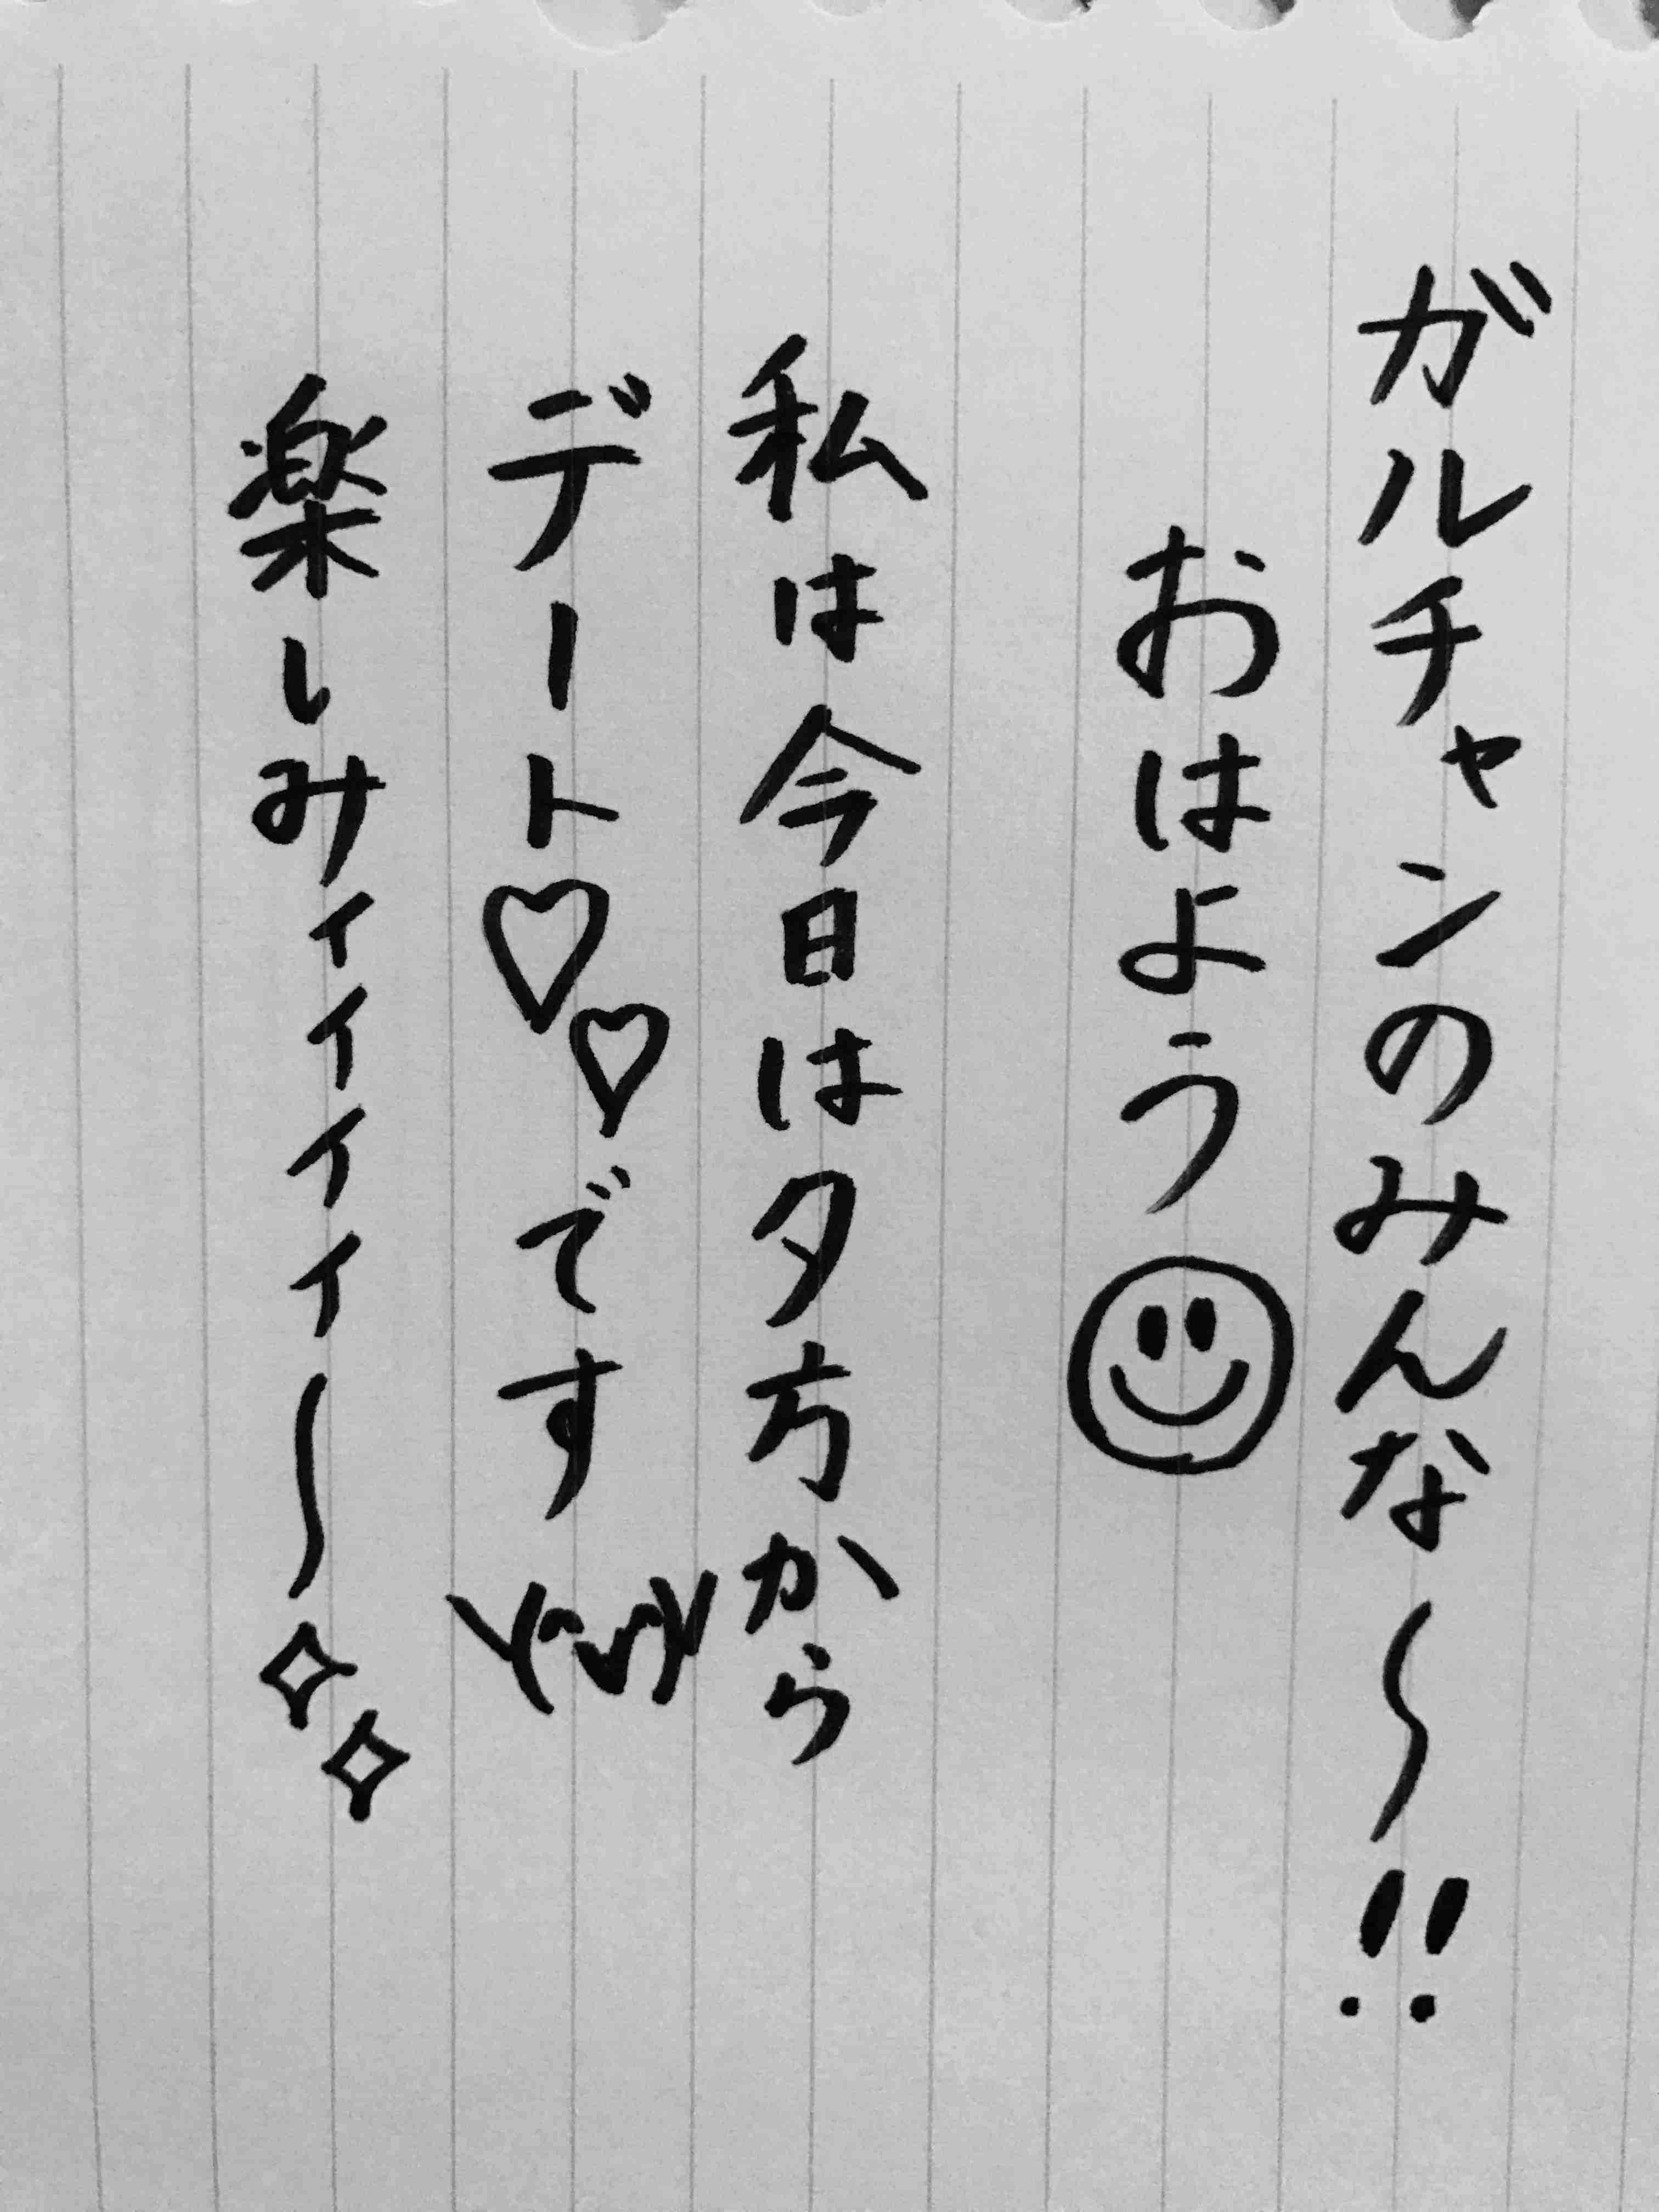 ガルチャンのみんな〜!!
おはよう☺
私は今日は夕方から
デート♡♡です
楽しみィィィィ〜✧✧